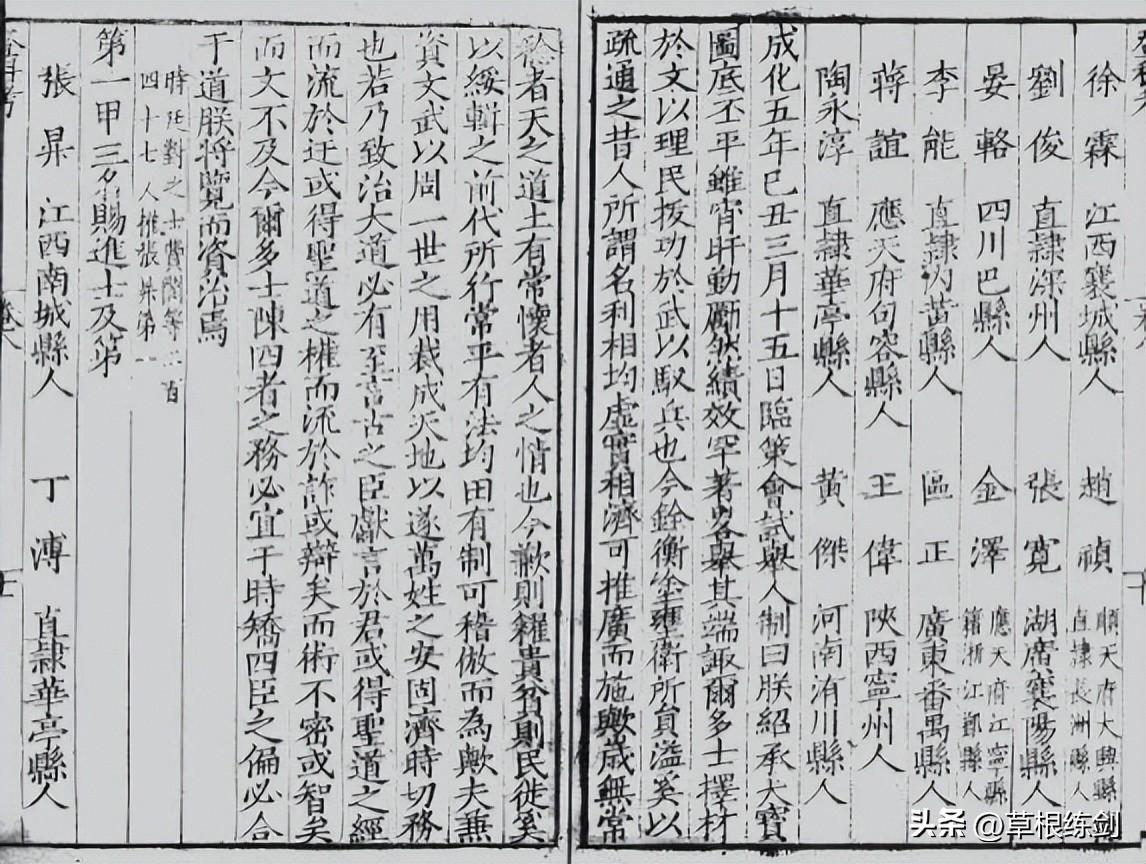 徐霖 江西襄城縣人 趙禎 順天府大興縣 直隸長洲縣人
劉俊 直隸深州人 張寬 湖廣襄陽縣人
晏輅 四川巴縣人 金澤 應天府江寧縣 籍浙江鄞縣人
李能 直隸内黃縣人 區正 廣東番禺縣人
蔣誼 應天府句容縣人 王偉 陝西寧州人
陶永淳 直隸華亭縣人 黃傑 河南洧川縣人
成化五年已丑三月十五日臨策會試舉人制曰朕紹承大寶
圖底丕平雖宵旰動勵然績效罕著畧舉其端諏爾多士擇材
於文以理民拔功於武以馭兵也今銓衡坌壅衛所員溢奚以
疏通之昔人所謂名利相均虛實相濟可推廣而施歟歲無常
稔者天之道土有常懷者人之情也今歉則糴貴貧則民徙奚
以綏輯之前代所行常平有法均田有制可稽倣而為歟夫兼
資文武以周一世之用裁成天地以遂萬姓之安固濟時切務
也若乃致治大道必有至言古之臣獻言於君或得聖道之經
而流於迂或得聖道之權而流於詐或辯矣而術不密或智矣
而文不及今爾多士陳四者之務必宜于時矯四臣之偏必合
于道朕將覽而資治焉
時廷對之士費誾等二百
四十七人推張昇第一
第一甲三名賜進士及第
張昇 江西南城縣人 丁溥 直隸華亭縣人
头条 @草根练剑